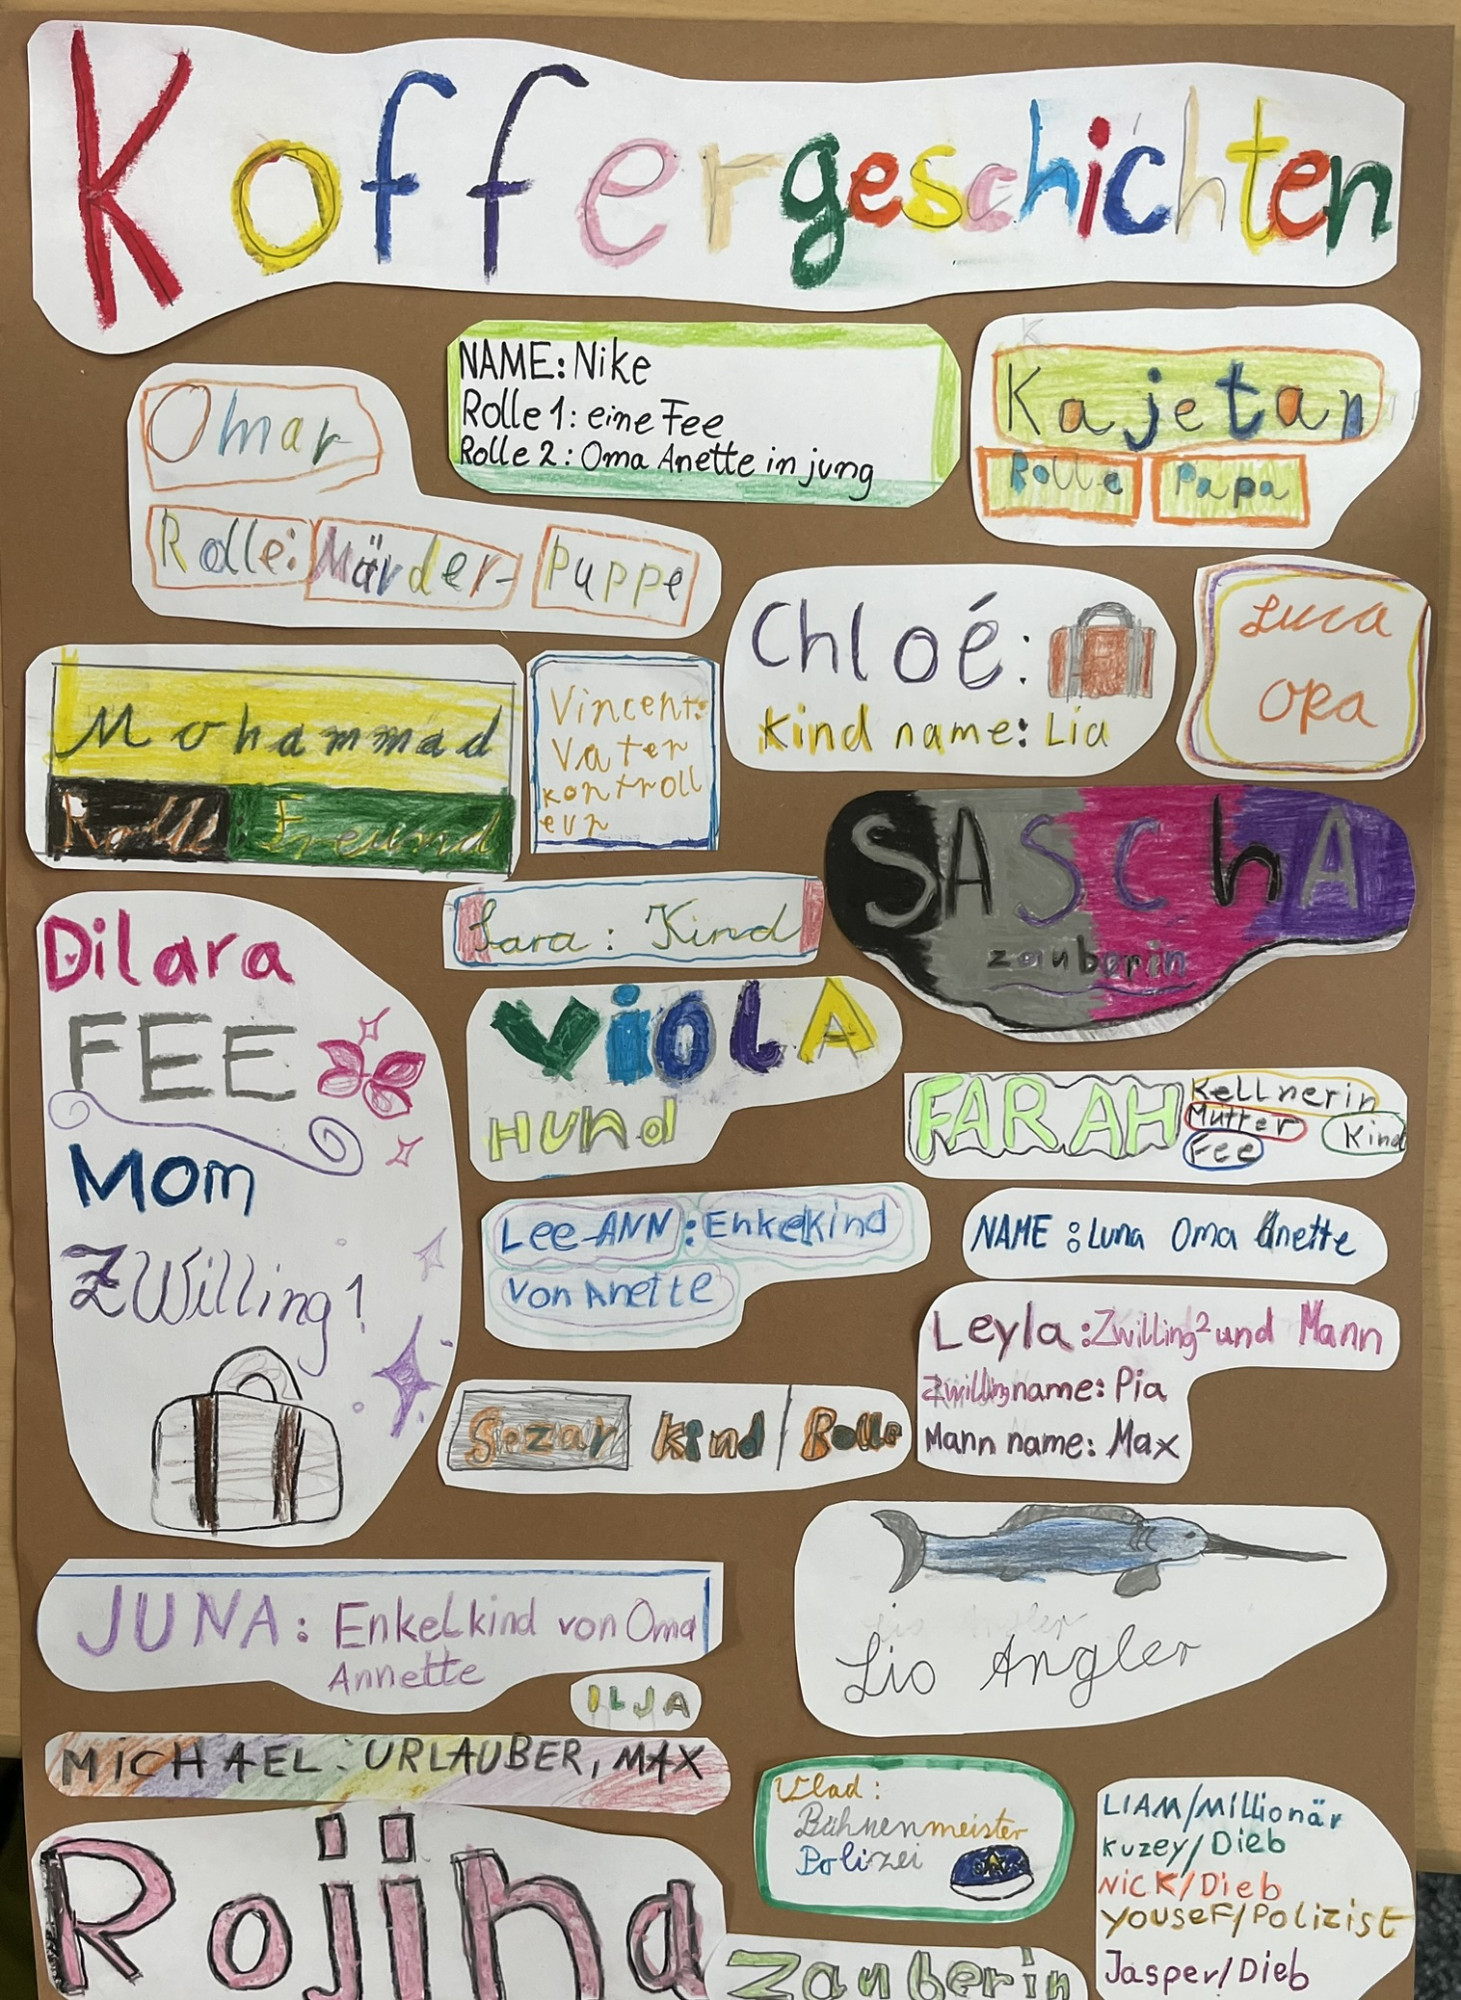 Koffergeschichten
NAME: Nike
Rolle 1: eine Fee
Rolle 2: Oma Anette in jung
Kajetan
Rolle Papa
Omar
Rolle: Mörder-Puppe
Chloé:
Kind name: Lia
Luca
Opa
Mohammad
Rolle: Freund
Vincent:
Vater
kontroll
eur
SASChA
zauberin
Sara: Kind
Dilara
FEE
Mom
ZWilling 1
ViOLA
HUnd
FARAH
Kellnerin
Mutter
Kind
Fee
Lee-ANN: Enkelkind
von Anette
NAME: Luna Oma Anette
Leyla: Zwilling 2 und Mann
Zwillingname: Pia
Mann name: Max
Sezar Kind/Rolle
JUNA: Enkelkind von Oma
Annette
ILJA
Lio Angler
MICHAEL: URLAUBER, MAX
Vlad:
Bühnenmeister
Polizei
LIAM/Millionär
Kuzey/Dieb
NiCK/Dieb
YouseF/Polizist
Jasper/Dieb
Rojina
Zauberin